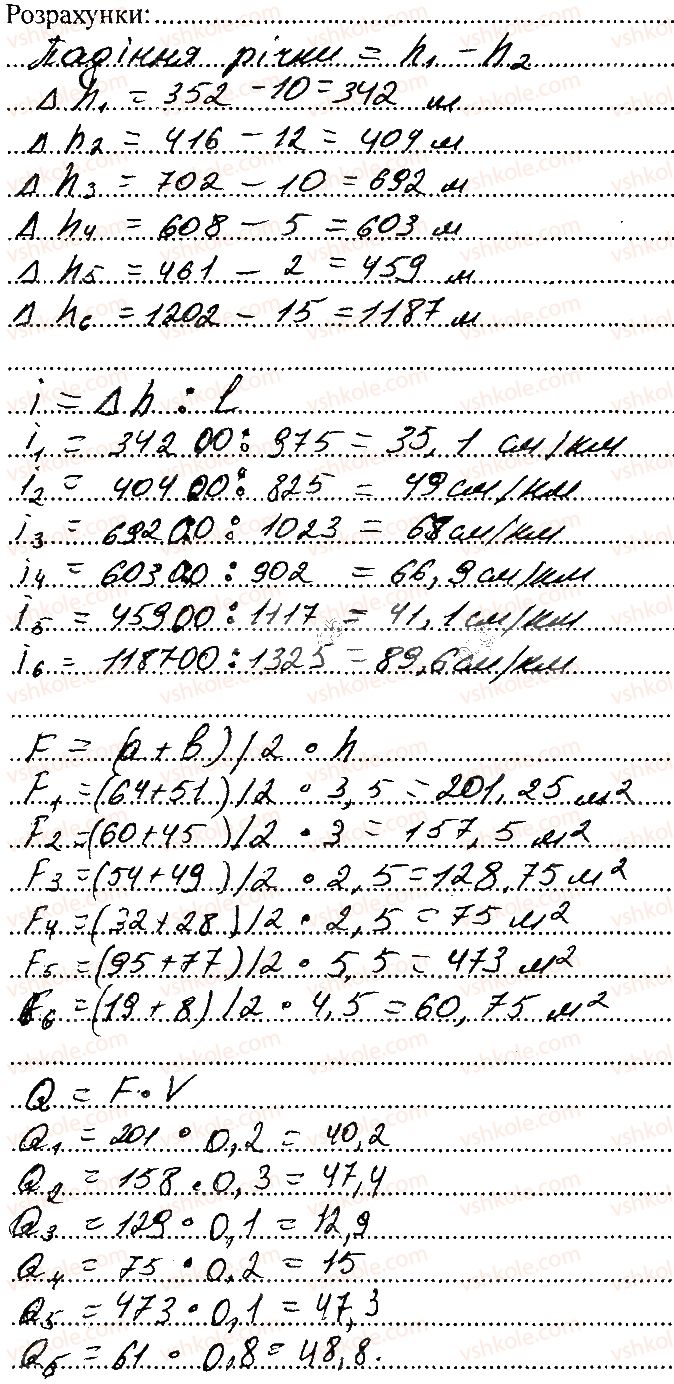 Розрахунки:
Падіння річки = h₁ - h₂
Δ h₁ = 352 - 10 = 342 м
Δ h₂ = 416 - 12 = 404 м
Δ h₃ = 702 - 10 = 692 м
Δ h₄ = 608 - 5 = 603 м
Δ h₅ = 461 - 2 = 459 м
Δ h₆ = 1202 - 15 = 1187 м
i = Δh : L
i₁ = 34200 : 975 = 35,1 см/км
i₂ = 40400 : 825 = 49 см/км
i₃ = 69200 : 1023 = 68 см/км
i₄ = 60300 : 902 = 66,9 см/км
i₅ = 45900 : 1117 = 41,1 см/км
i₆ = 118700 : 1325 = 89,6 см/км
F = (a + b) / 2 • h
F₁ = (64+51) / 2 • 3,5 = 201,25 м²
F₂ = (60+45) / 2 • 3 = 157,5 м²
F₃ = (54+49) / 2 • 2,5 = 128,75 м²
F₄ = (32+28) / 2 • 2,5 = 75 м²
F₅ = (95+77) / 2 • 5,5 = 473 м²
F₆ = (19+8) / 2 • 4,5 = 60,75 м²
Q = F • V
Q₁ = 201 • 0,2 = 40,2
Q₂ = 158 • 0,3 = 47,4
Q₃ = 129 • 0,1 = 12,9
Q₄ = 75 • 0,2 = 15
Q₅ = 473 • 0,1 = 47,3
Q₆ = 61 • 0,8 = 48,8.